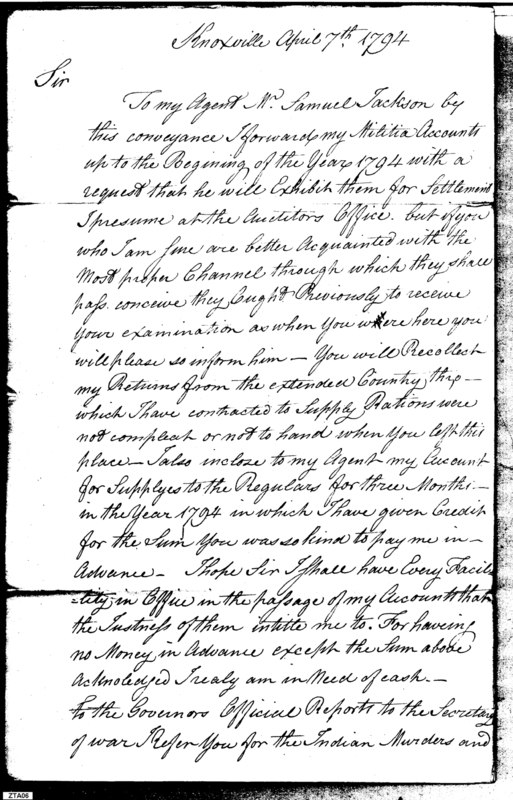 Knoxville April 7th 1794
Sir
To my Agent Mr. Samuel Jackson by
this conveyance I forward my Militia Accounts
up to the Begining of the Year 1794 with a
request that he will Exhibit them for Settlement
I presume at the Auctitors Office. but if you
who I am sure are better Acquainted with the
Most proper Channel through which they shall
pass. conceive they Ought Previously to receive
your examination as when you were here you
will please so inform him — You will Recollect
my Returns from the extended Country thro—
which I have contracted to Supply Rations were
not compleat or not to hand when You left this
place — I also inclose to my Agent my Account
for Supplyes to the Regulars for three Months —
in the Year 1794 in which I have given Credit
for the Sum You was so kind to pay me in —
Advance — I hope Sir I shall have Every Facili
-lity in Office in the passage of my Accounts that
the Justness of them intitle me to. For haveing
no Money in Advance except the Sum above
Acknoledged I realy am in Need of cash. —
to the Governors Official Reports to the Secretary
of war I Refer You for the Indian Murders and
ZTA06